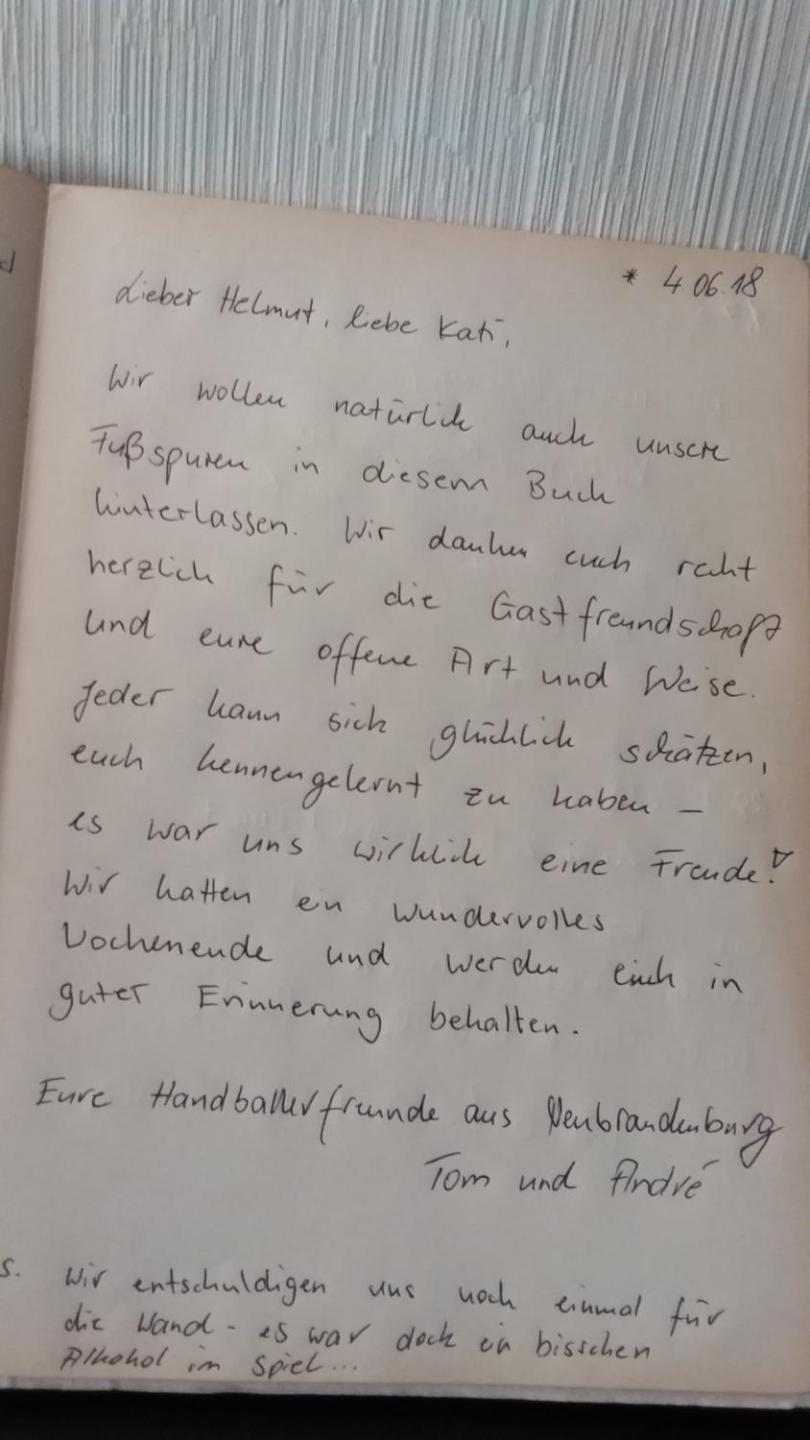 * 4 06.18
Lieber Helmut, liebe Kati,
Wir wollen natürlich auch unsere
Fußspuren in diesem Buch
hinterlassen. Wir danken euch recht
herzlich für die Gastfreundschaft
und eure offene Art und Weise.
Jeder kann sich glücklich schätzen,
euch kennengelernt zu haben –
es war uns wirklich eine Freude!
Wir hatten ein wundervolles
Wochenende und werden euch in
guter Erinnerung behalten.
Eure Handballerfreunde aus Neubrandenburg
Tom und André
S. Wir entschuldigen uns noch einmal für
die Wand - es war doch ein bisschen
Alkohol im Spiel...